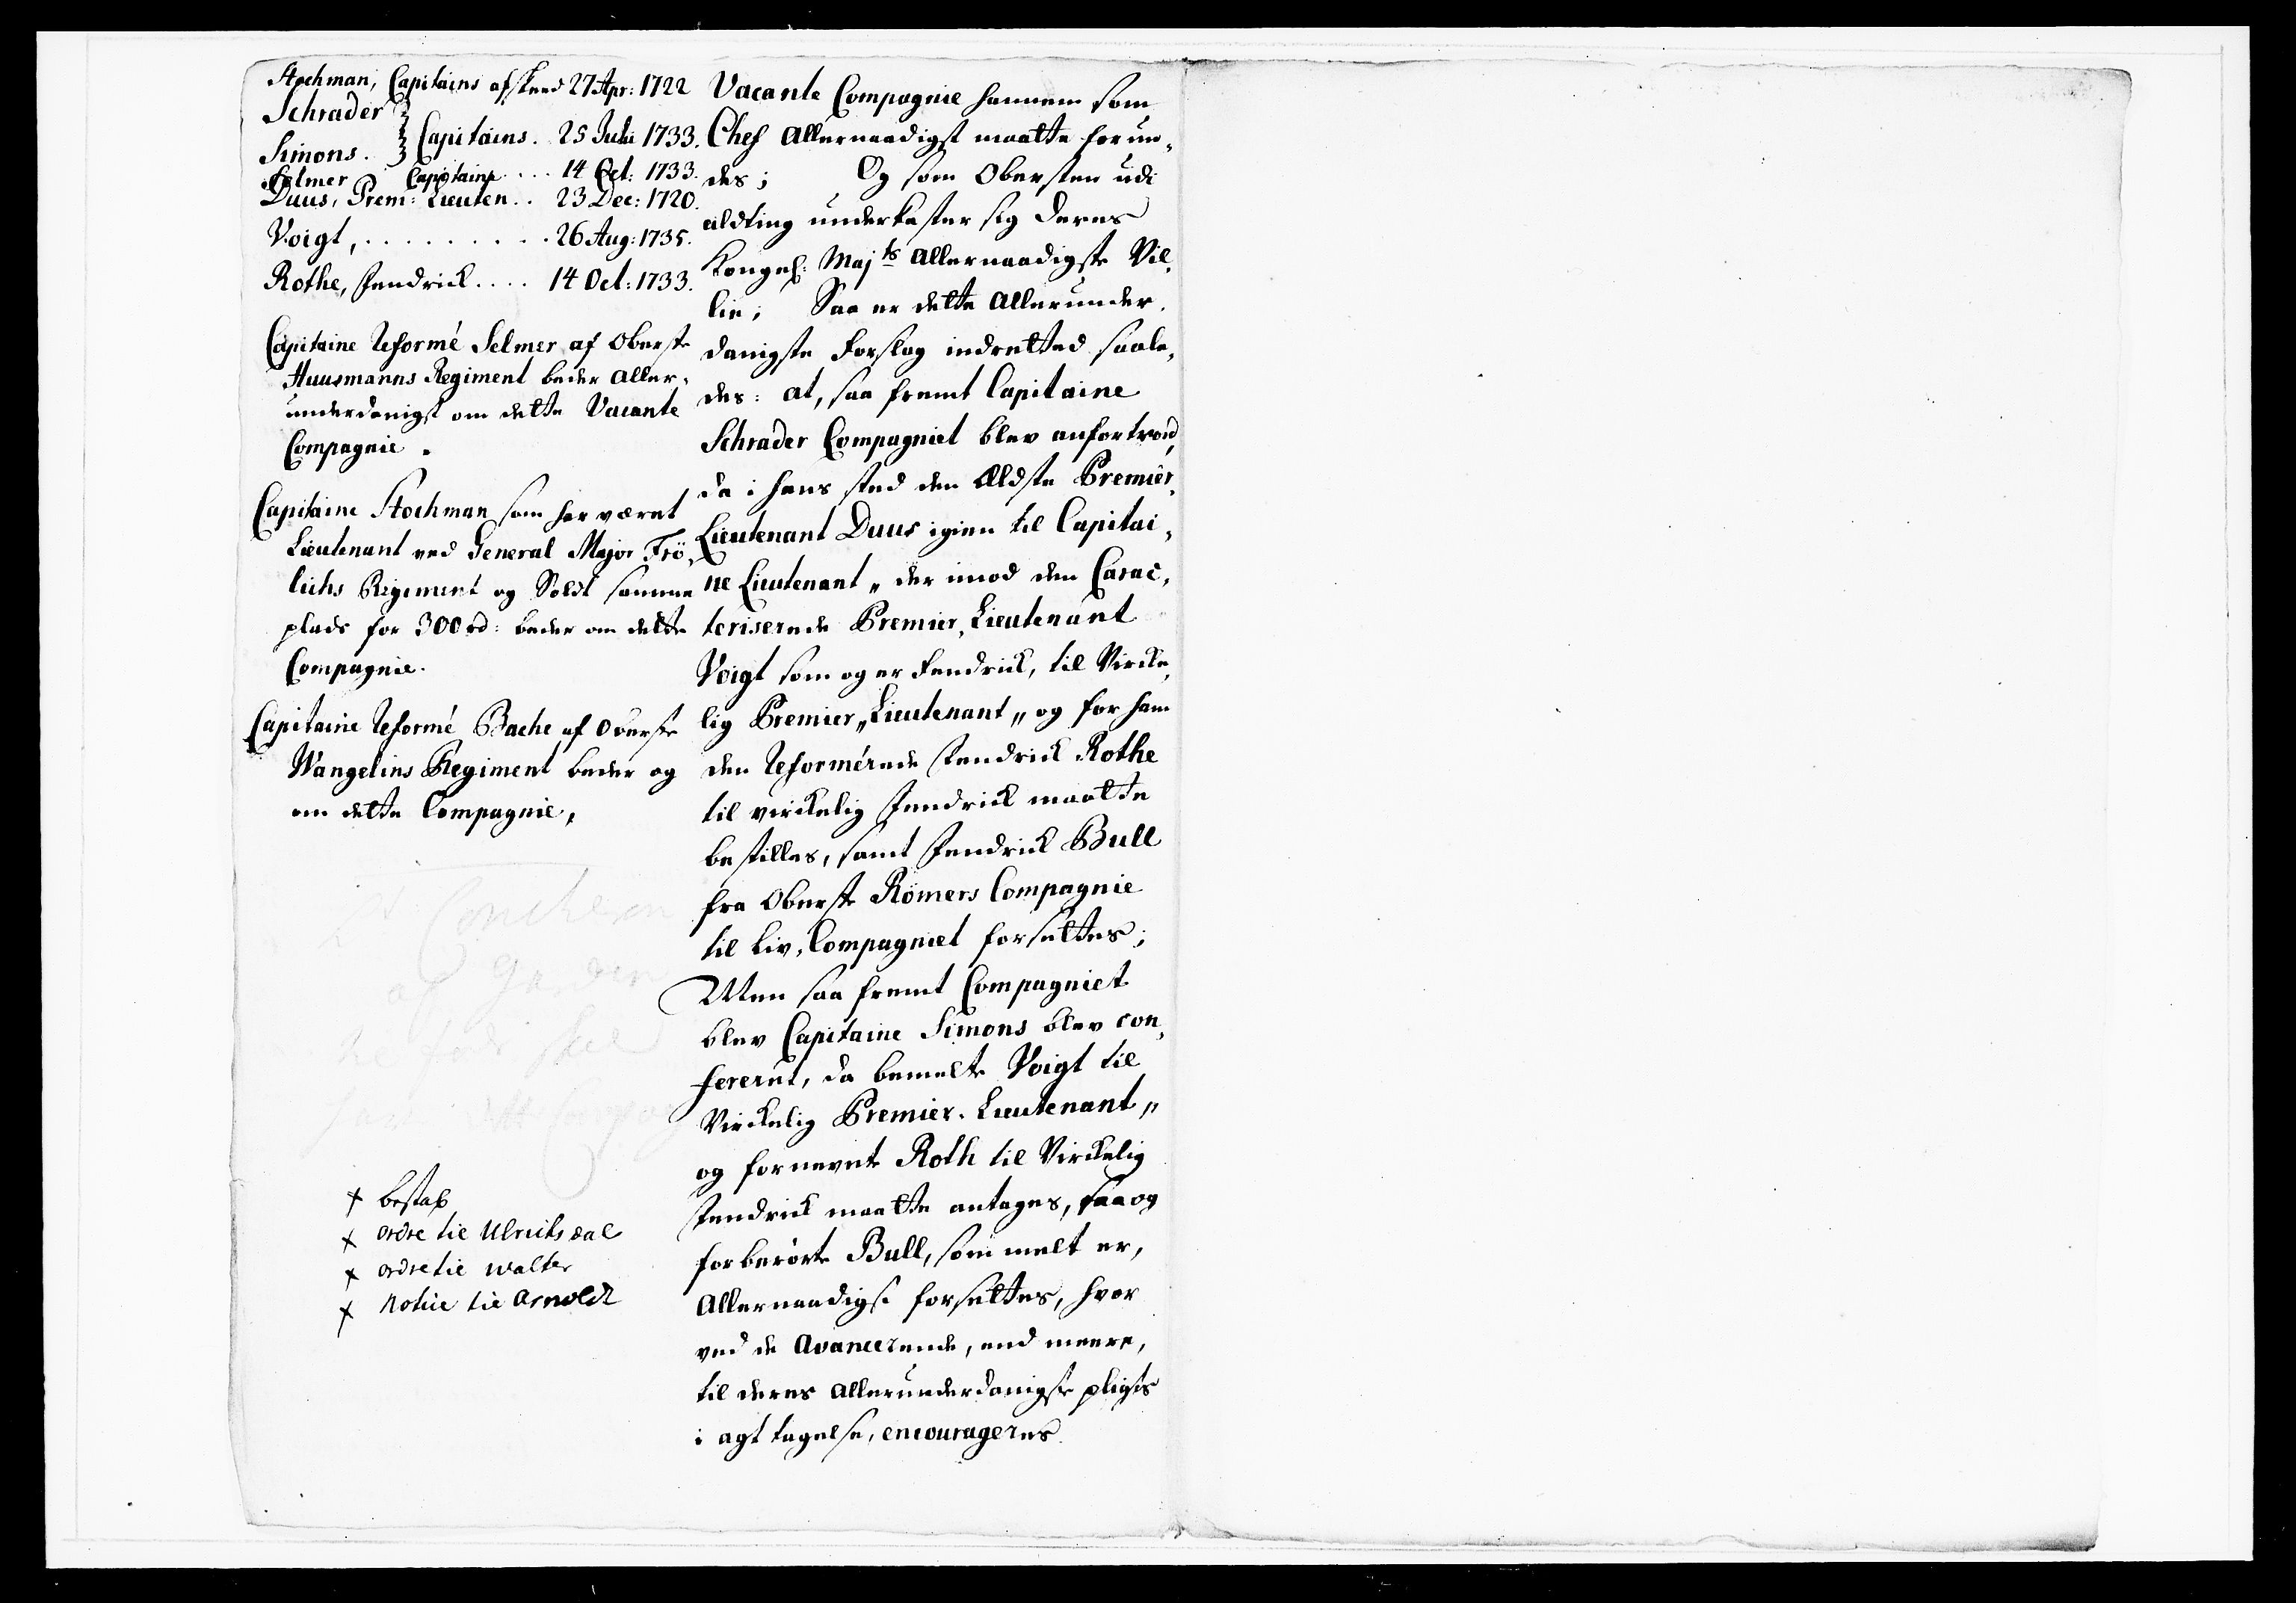 Stochman, Capitains afskeed 27 Apr: 1722
Schrader
Simons. Capitains. 25 Juli 1733.
Selmer Capitaine .... 14 Oct: 1733.
Duus, Prem: Lieuten.. 23 Dec: 1720.
Voigt, ......... 26 Aug: 1735.
Rothe, Fendrick .... 14 Oct: 1733.
Capitaine Reformé Selmer af Oberste
Huusmanns Regiment beder aller-
underdanigst om dette Vacante
Compagnie.
Capitaine Stochman som har været
Lieutenant ved General Major Frö-
lichs Regiment og Soldt samme
plads for 300 rd: beder om dette
Compagnie.
Capitaine Reformé Bache af Oberste
Wangelins Regiment beder og
om dette Compagnie,
+ bestal
+ ordre til Ulrichsdal
+ ordre til Walter
+ Notice til Arnoldt
Vacante Compagnie hannem som
Chef Allernaadigst maatte forun-
des; Og som Obersten udi
aldting underkaster sig Deres
Kongel: Maj ts Allernaadigste Vil-
lie; Saa er dette Allerunder-
danigste Forslag indretted saale-
des: at, saa fremt Capitaine
Schrader Compagniet blev anfortroed,
da i hans sted den Ældste Premier-
Lieutenant Duus igien til Capitai-
ne Lieutenant, der imod den Carac-
teriserede Premier-Lieutenant
Voigt som og er Fendrick, til Vircke-
lig Premier-Lieutenant, og for ham
den Reformérede Fendrick Rothe
til virckelig Fendrick maatte
bestilles, samt Fendrick Bull
fra Oberste Römers Compagnie
til Liv-Compagniet forsettes;
Men saa fremt Compagniet
blev Capitaine Simons blev con-
fereret, da bemelte Voigt til
Virckelig Premier-Lieutenant,,
og fornevnte Roth til Virckelig
Fendrick maatte antages, saa og
forberörte Bull, som melt er,
Allernaadigst forsettes, hvor
ved de Avancerende, end meere,
til deres allerunderdanigste pligts
i agt tagelse, encourageres.